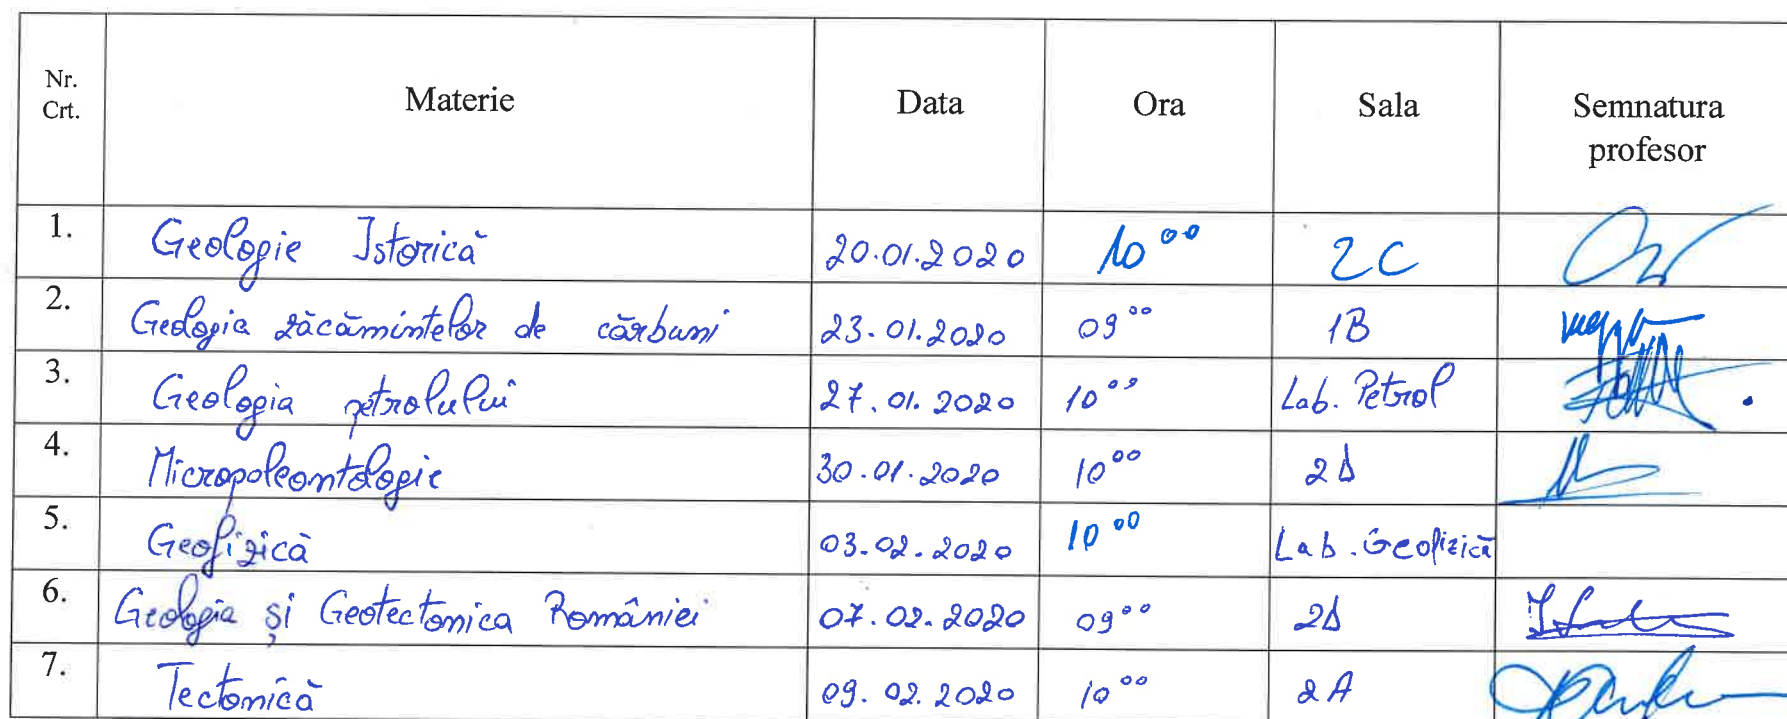 Nr. Crt. Materie Data Ora Sala Semnatura profesor
1. Geologie Istorică 20.01.2020 10⁰⁰ 2C
2. Geologia zăcămintelor de cărbuni 23.01.2020 09⁰⁰ 1B
3. Geologia petrolului 27.01.2020 10⁰⁰ Lab. Petrol
4. Micropaleontologie 30.01.2020 10⁰⁰ 2D
5. Geofizică 03.02.2020 10⁰⁰ Lab. Geofizică
6. Geologia și Geotectonica României 07.02.2020 09⁰⁰ 2D
7. Tectonică 09.02.2020 10⁰⁰ 2A